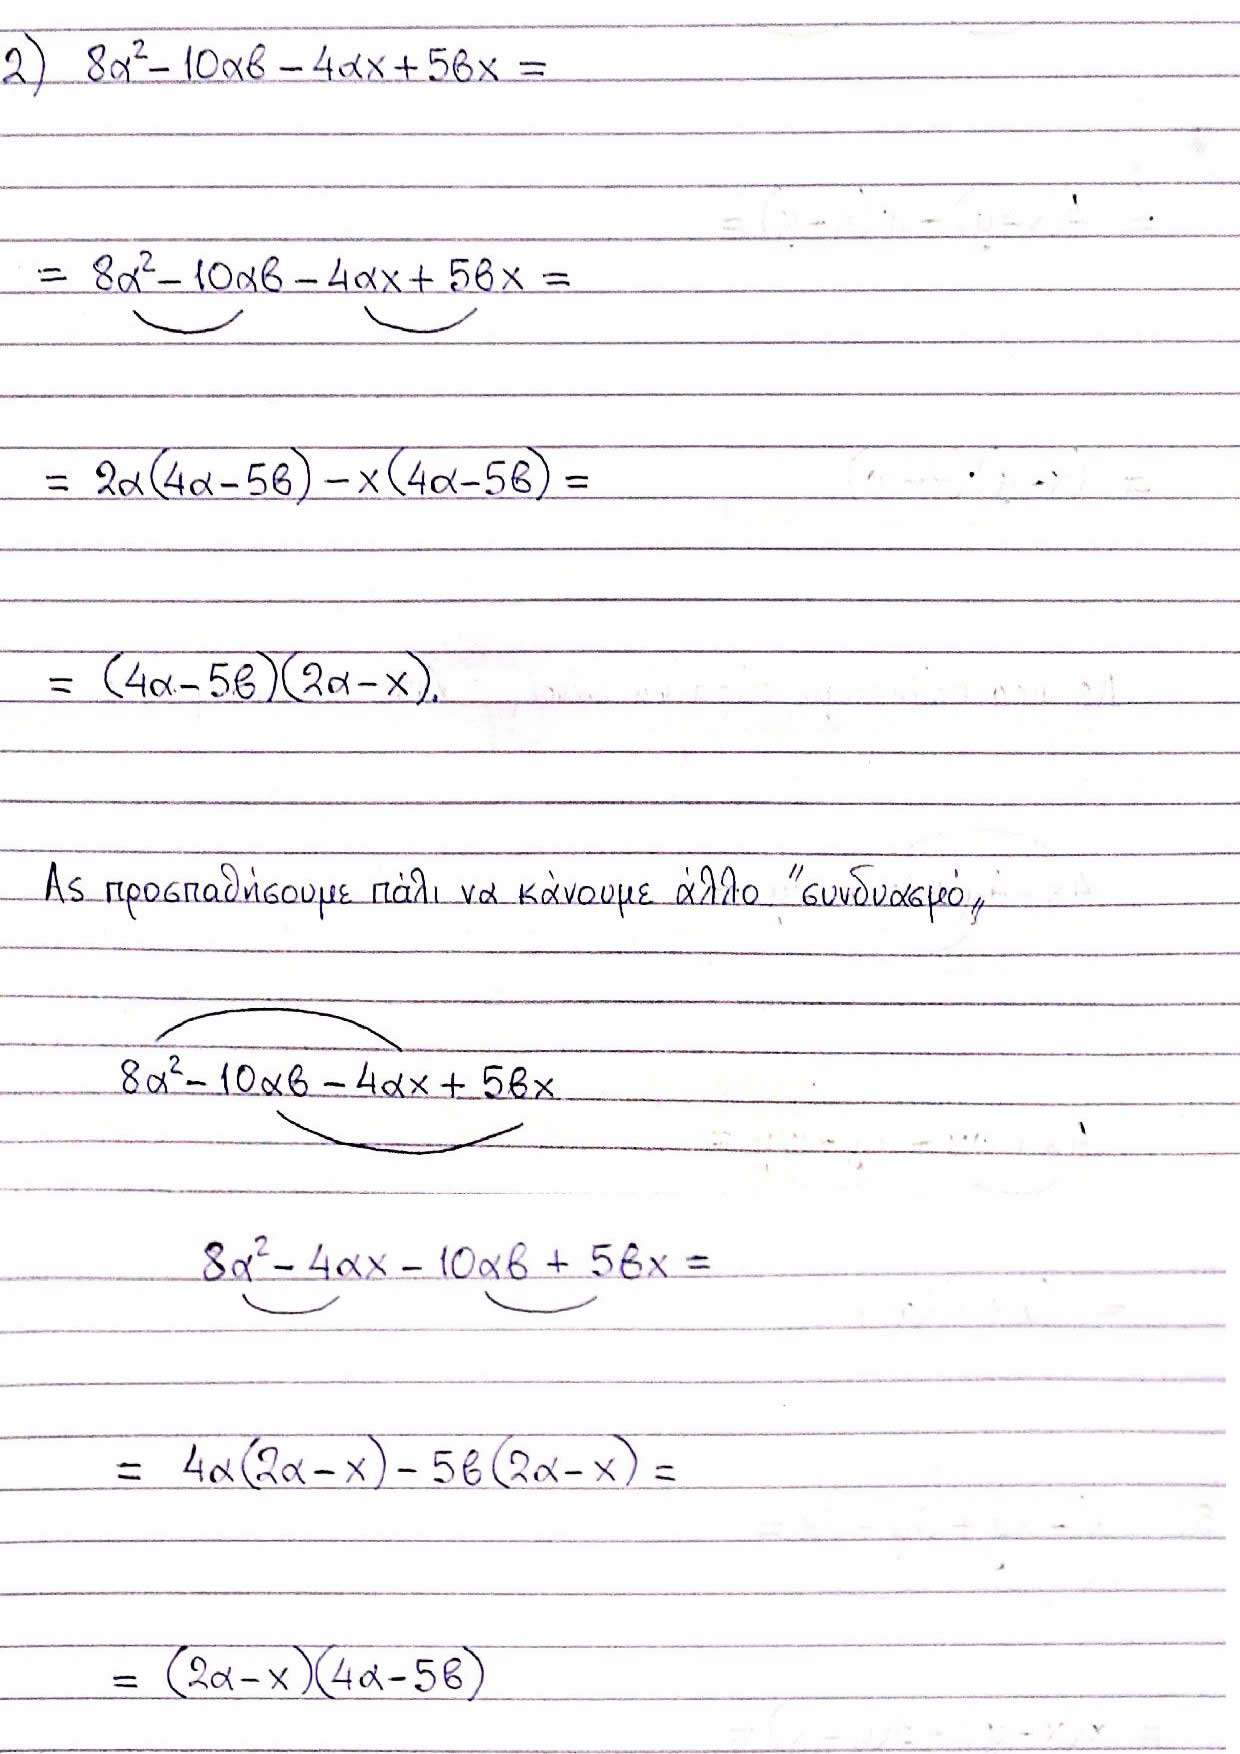 2) 8α² - 10αβ - 4αx + 5βx =
= 8α² - 10αβ - 4αx + 5βx =
= 2α(4α - 5β) - x(4α - 5β) =
= (4α - 5β)(2α - x).
Ας προσπαθήσουμε πάλι να κάνουμε άλλο "συνδυασμό"
8α² - 10αβ - 4αx + 5βx
8α² - 4αx - 10αβ + 5βx =
= 4α(2α - x) - 5β(2α - x) =
= (2α - x)(4α - 5β)